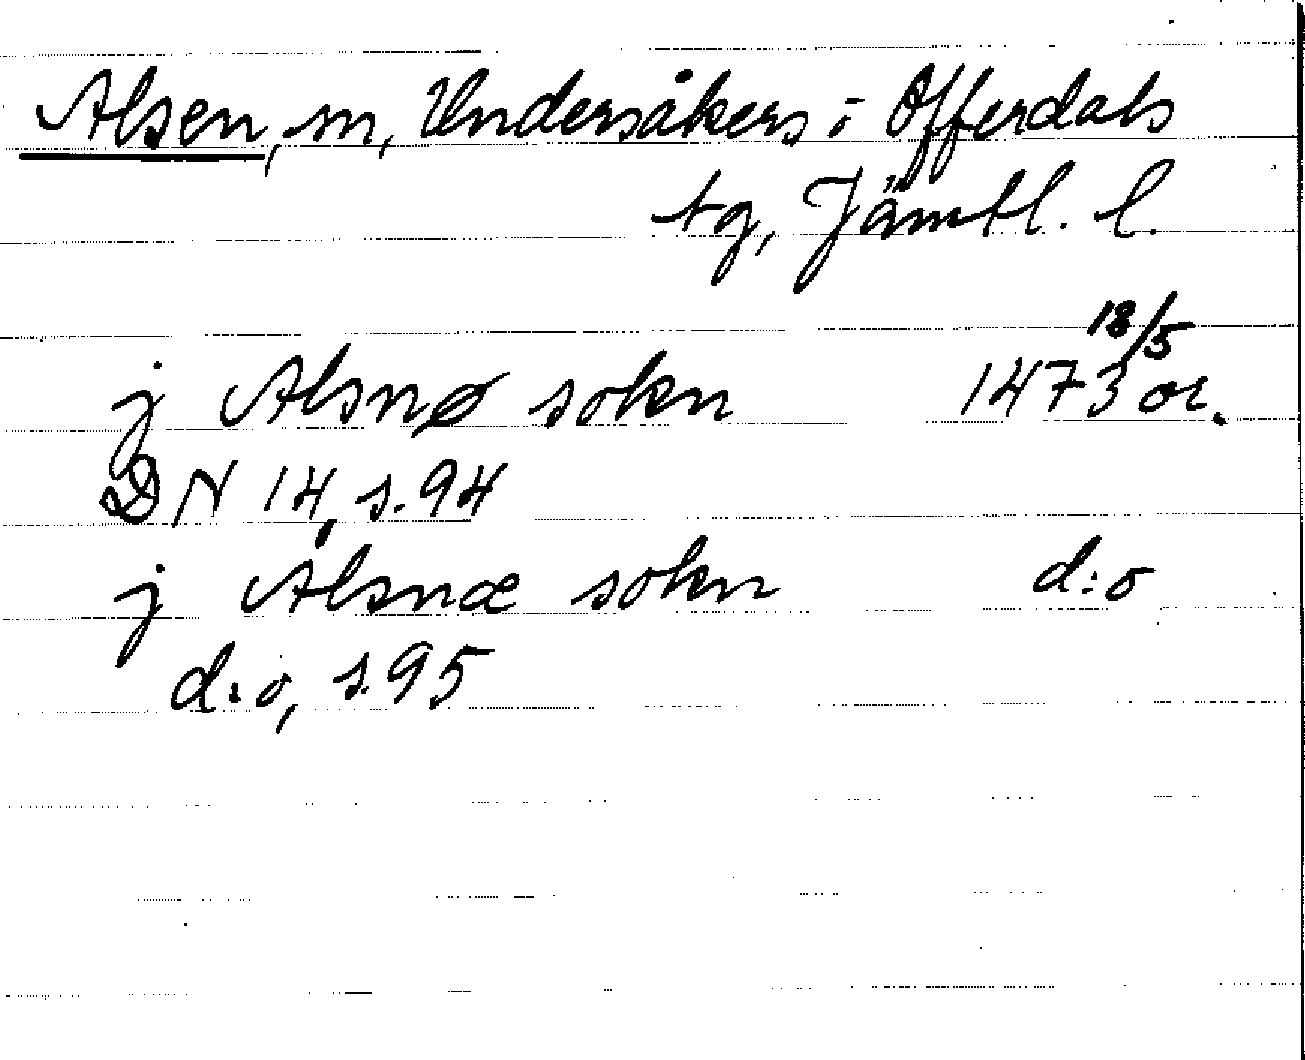 Alsen, sn, Undersåkers o Offerdals
tg, Jämtl. l.
18/5
j Alsnø sokn 1473 or.
DN 14, s. 94
j Alsnæ sokn d:o
d:o, s. 95